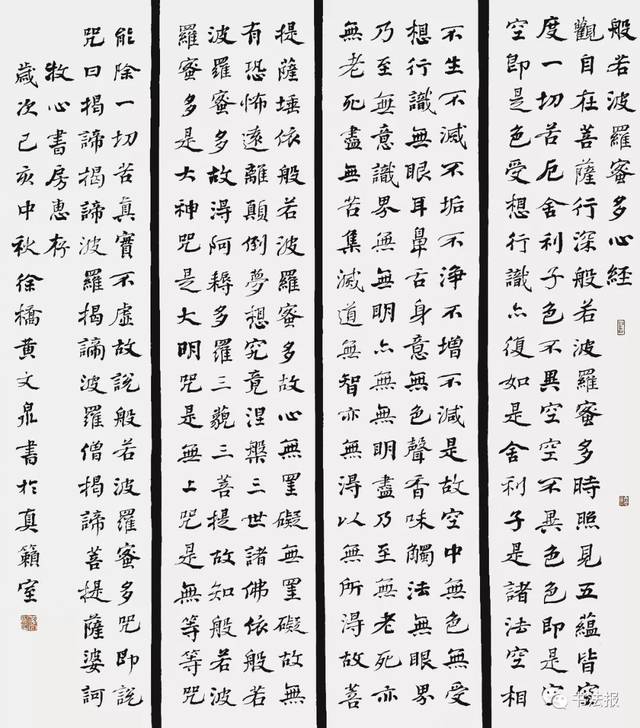 般若波羅蜜多心経
觀自在菩薩行深般若波羅蜜多時照見五蘊皆空
度一切苦厄舍利子色不異空空不異色色即是空
空即是色受想行識亦復如是舍利子是諸法空相
不生不滅不垢不淨不增不減是故空中無色無受
想行識無眼耳鼻舌身意無色聲香味觸法無眼界
乃至無意識界無無明亦無無明盡乃至無老死亦
無老死盡無苦集滅道無智亦無得以無所得故菩
提薩埵依般若波羅蜜多故心無罣礙無罣礙故無
有恐怖遠離顛倒夢想究竟涅槃三世諸佛依般若
波羅蜜多故得阿耨多羅三藐三菩提故知般若波
羅蜜多是大神咒是大明咒是無上咒是無等等咒
能除一切苦真實不虛故說般若波羅蜜多咒即說
咒曰揭諦揭諦波羅揭諦波羅僧揭諦菩提薩婆訶
牧心書房惠存
歲次己亥中秋徐橋黃文泉書於真籟室
书法报